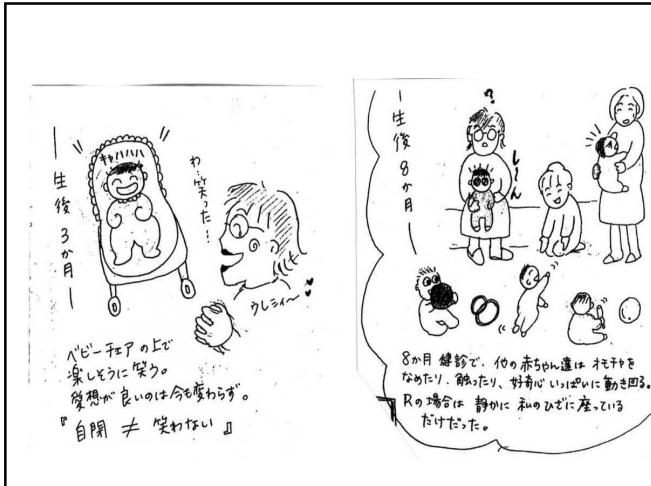 ― 生後 3か月 ―
キャハハハ
わ…笑った…!
ウレシイ〜
ベビーチェアの上で
楽しそうに笑う。
愛想が良いのは今も変わらず。
『自閉 ≠ 笑わない』
― 生後 8か月 ―
?
し〜ん
8か月健診で、他の赤ちゃん達はオモチャを
なめたり、触ったり、好奇心いっぱいに動き回る。
Rの場合は静かに私のひざに座っている
だけだった。